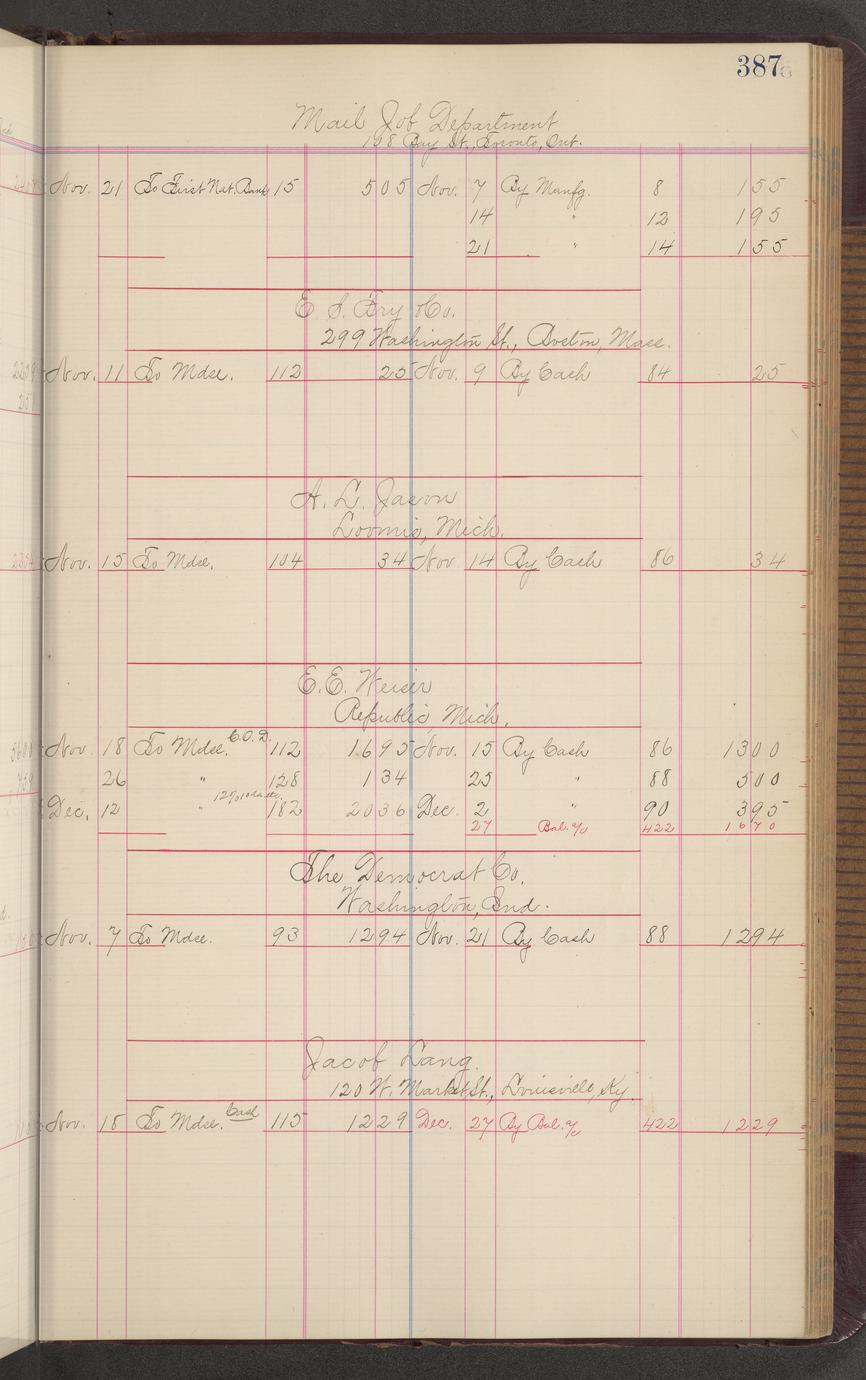 387
Mail Job Department
198 Bay St., Toronto, Ont.
Nov. 21 To First Nat. Bank 15 5 05 Nov. 7 By Manfg. 8 1 55
14 " 12 1 95
21 " 14 1 55
E. S. Fry & Co.
299 Washington St., Boston, Mass.
Nov. 11 To Mdse. 112 25 Nov. 9 By Cash 84 25
A. L. Jason
Loomis, Mich.
Nov. 15 To Mdse. 104 34 Nov. 14 By Cash 86 34
E. E. Weiser
Republic, Mich.
Nov. 18 To Mdse. C.O.D. 112 16 95 Nov. 15 By Cash 86 13 00
26 " 128 1 34 25 " 88 5 00
Dec. 12 " 182 20 36 Dec. 2 " 90 3 95
27 Bal. a/c 422 16 70
The Democrat Co.
Washington, Ind.
Nov. 7 To Mdse. 93 12 94 Nov. 21 By Cash 88 12 94
Jacob Lang.
120 W. Market St., Louisville, Ky.
Nov. 18 To Mdse. Cash 115 12 29 Dec. 27 By Bal. a/c 422 12 29